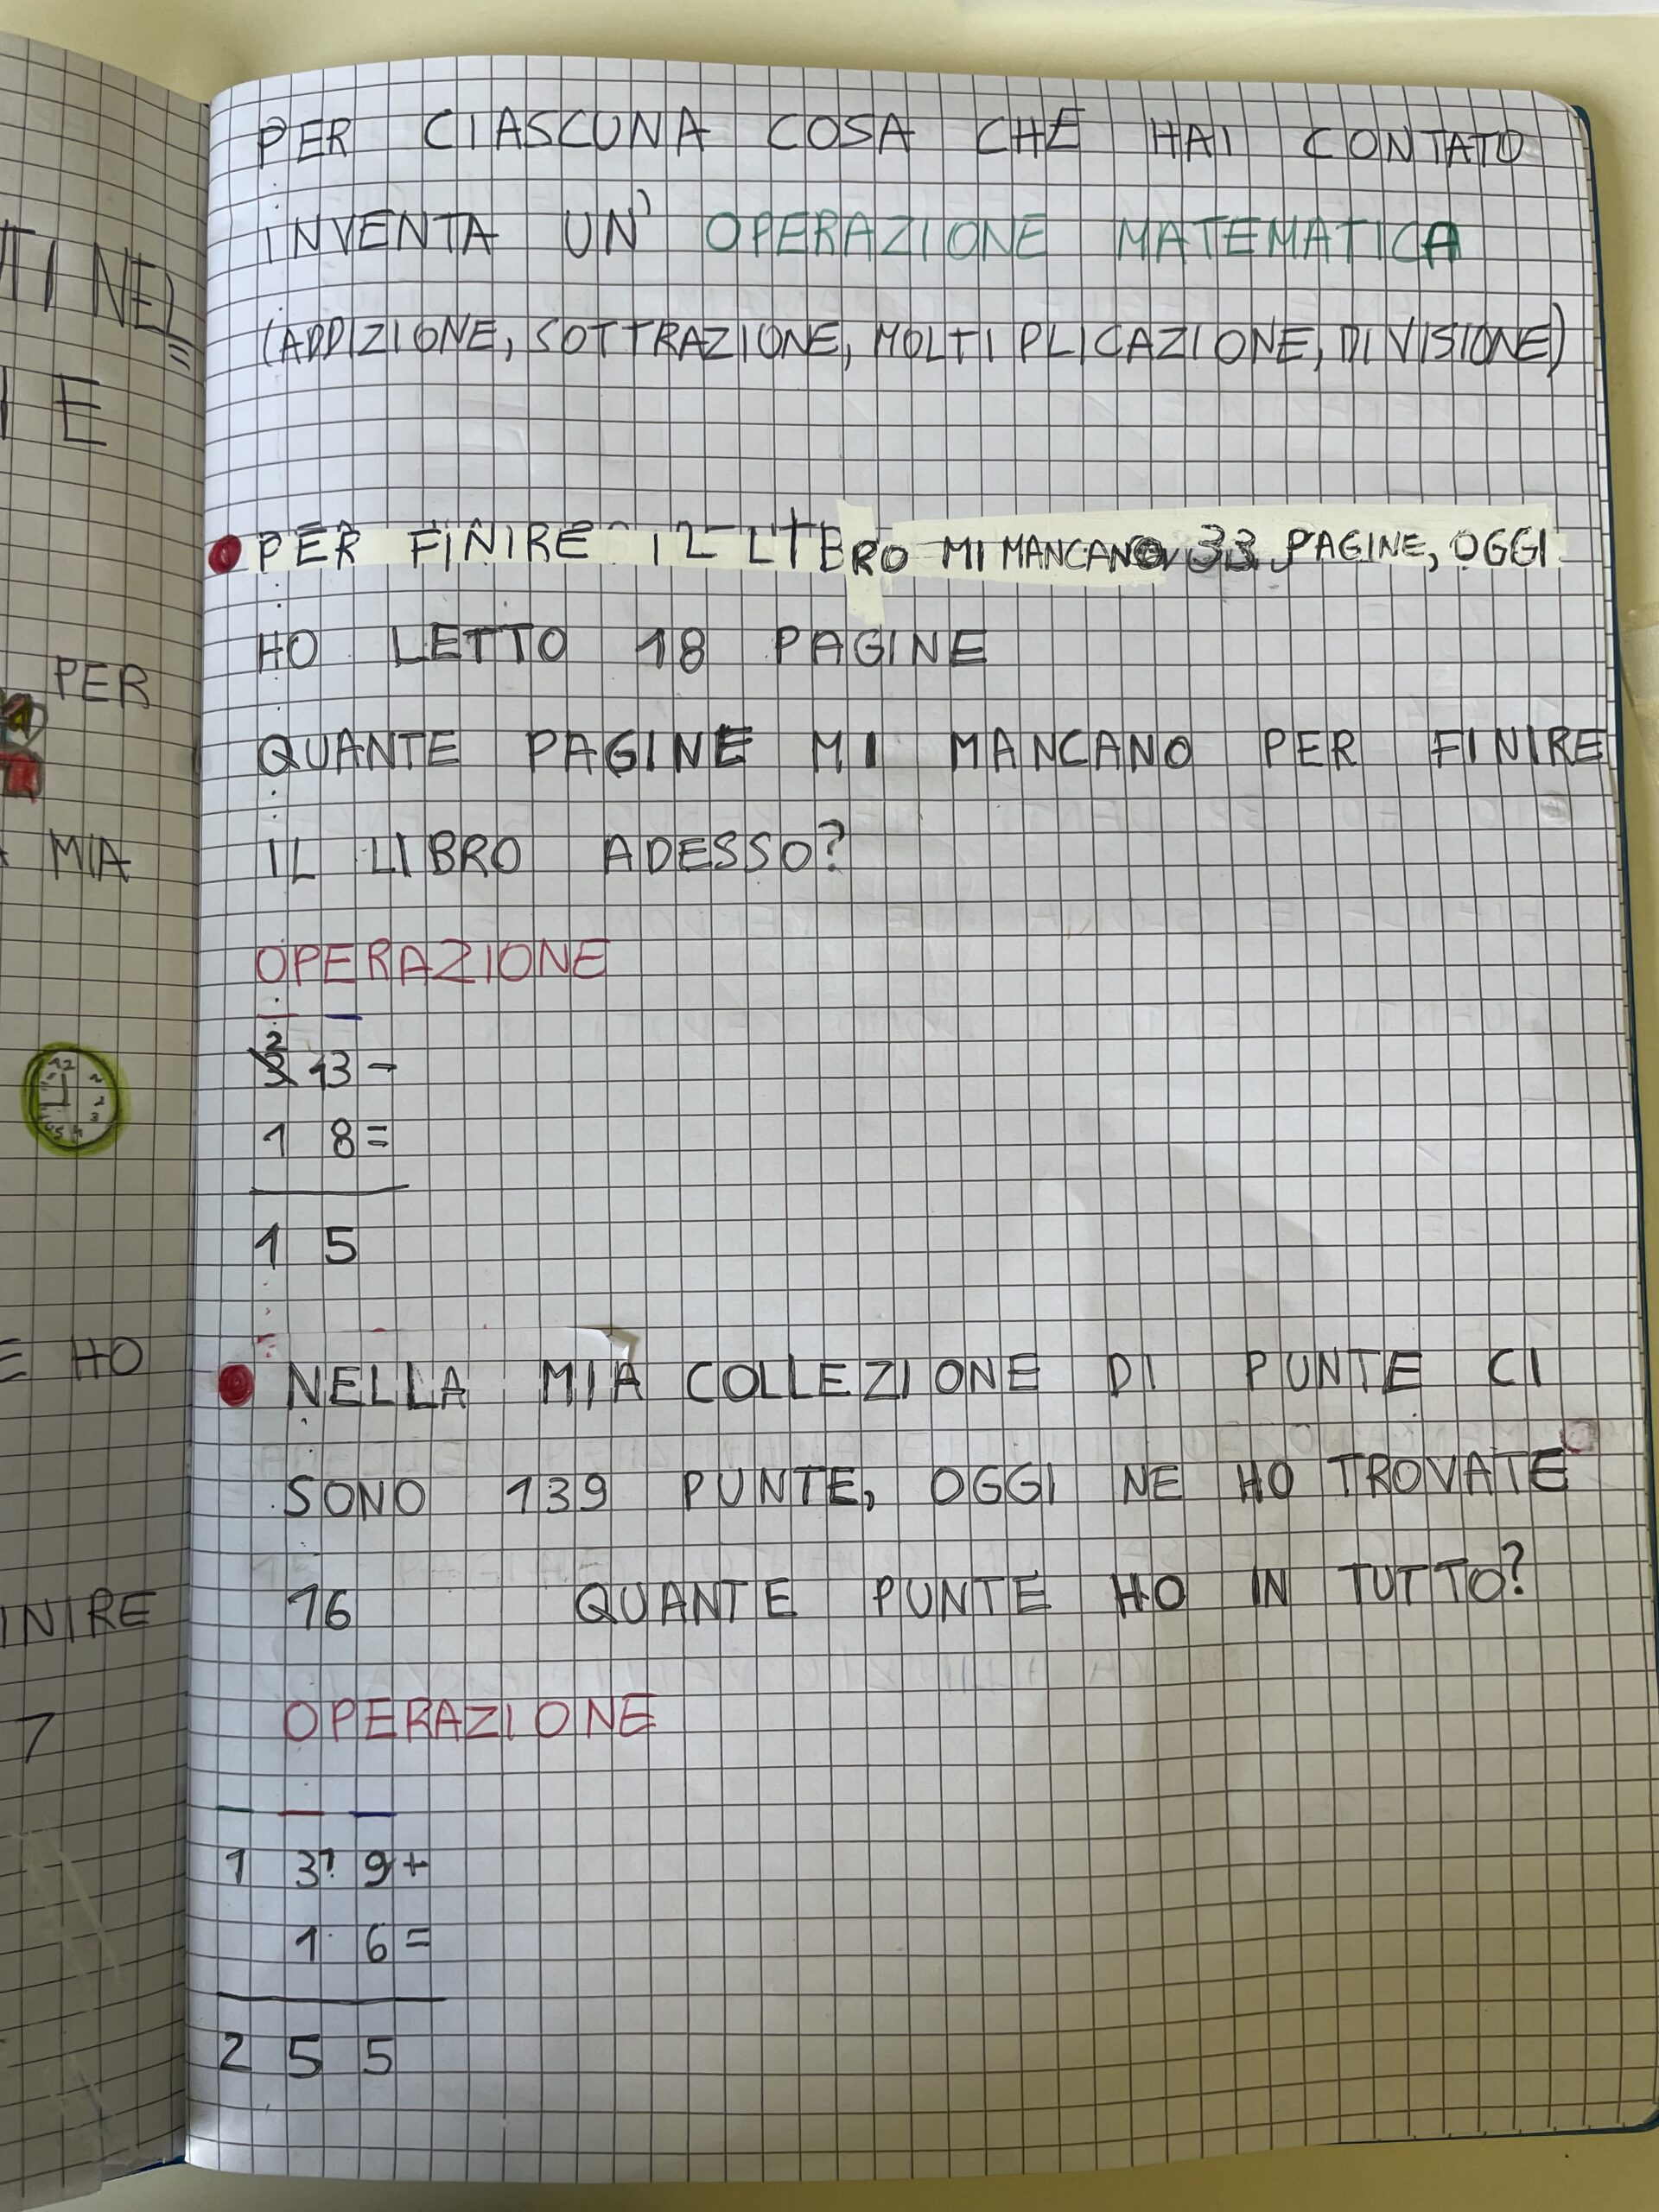 PER CIASCUNA COSA CHE HAI CONTATO
INVENTA UN' OPERAZIONE MATEMATICA
(ADDIZIONE, SOTTRAZIONE, MOLTIPLICAZIONE, DIVISIONE)
PER FINIRE IL LIBRO MI MANCANO 33 PAGINE, OGGI
HO LETTO 18 PAGINE
QUANTE PAGINE MI MANCANO PER FINIRE
IL LIBRO ADESSO?
OPERAZIONE
2
3 13 -
1 8 =
1 5
NELLA MIA COLLEZIONE DI PUNTE CI
SONO 139 PUNTE, OGGI NE HO TROVATE
16 QUANTE PUNTE HO IN TUTTO?
OPERAZIONE
1 3 1 9 +
1 6 =
2 5 5
NEL
E
PER
MIA
E HO
INIRE
7